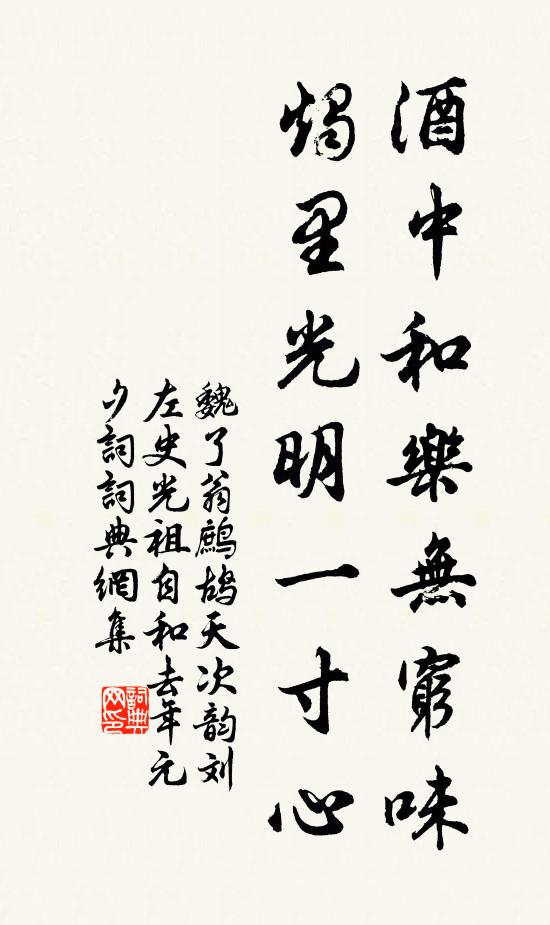 酒中和樂無窮味
燭里光明一寸心
魏了翁鷓鴣天次韵刘
左史光祖自和去年元
夕詞詞典網集
詞典
网印